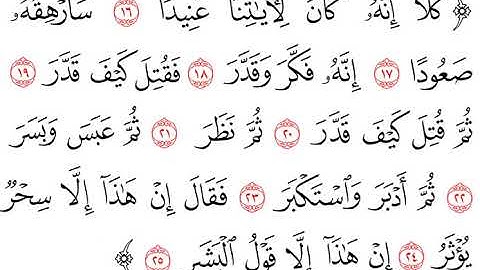 ﴿ كَلَّا إِنَّهُۥ كَانَ لِأَيَٰتِنَا عَنِيدًا ١٦ سَأُرۡهِقُهُۥ
صَعُودًا ١٧ إِنَّهُۥ فَكَّرَ وَقَدَّرَ ١٨ فَقُتِلَ كَيۡفَ قَدَّرَ ١٩
ثُمَّ قُتِلَ كَيۡفَ قَدَّرَ ٢٠ ثُمَّ نَظَرَ ٢١ ثُمَّ عَبَسَ وَبَسَرَ
٢٢ ثُمَّ أَدۡبَرَ وَٱسۡتَكۡبَرَ ٢٣ فَقَالَ إِنۡ هَٰذَآ إِلَّا سِحۡرٞ
يُؤۡثَرُ ٢٤ إِنۡ هَٰذَآ إِلَّا قَوۡلُ ٱلۡبَشَرِ ٢٥ ﴾